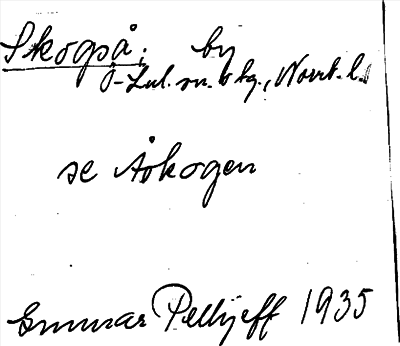 Skogså, by
Ö-Lul. sn. o tg., Norrb. l.
se Åskogen
Gunnar Pellijeff 1935